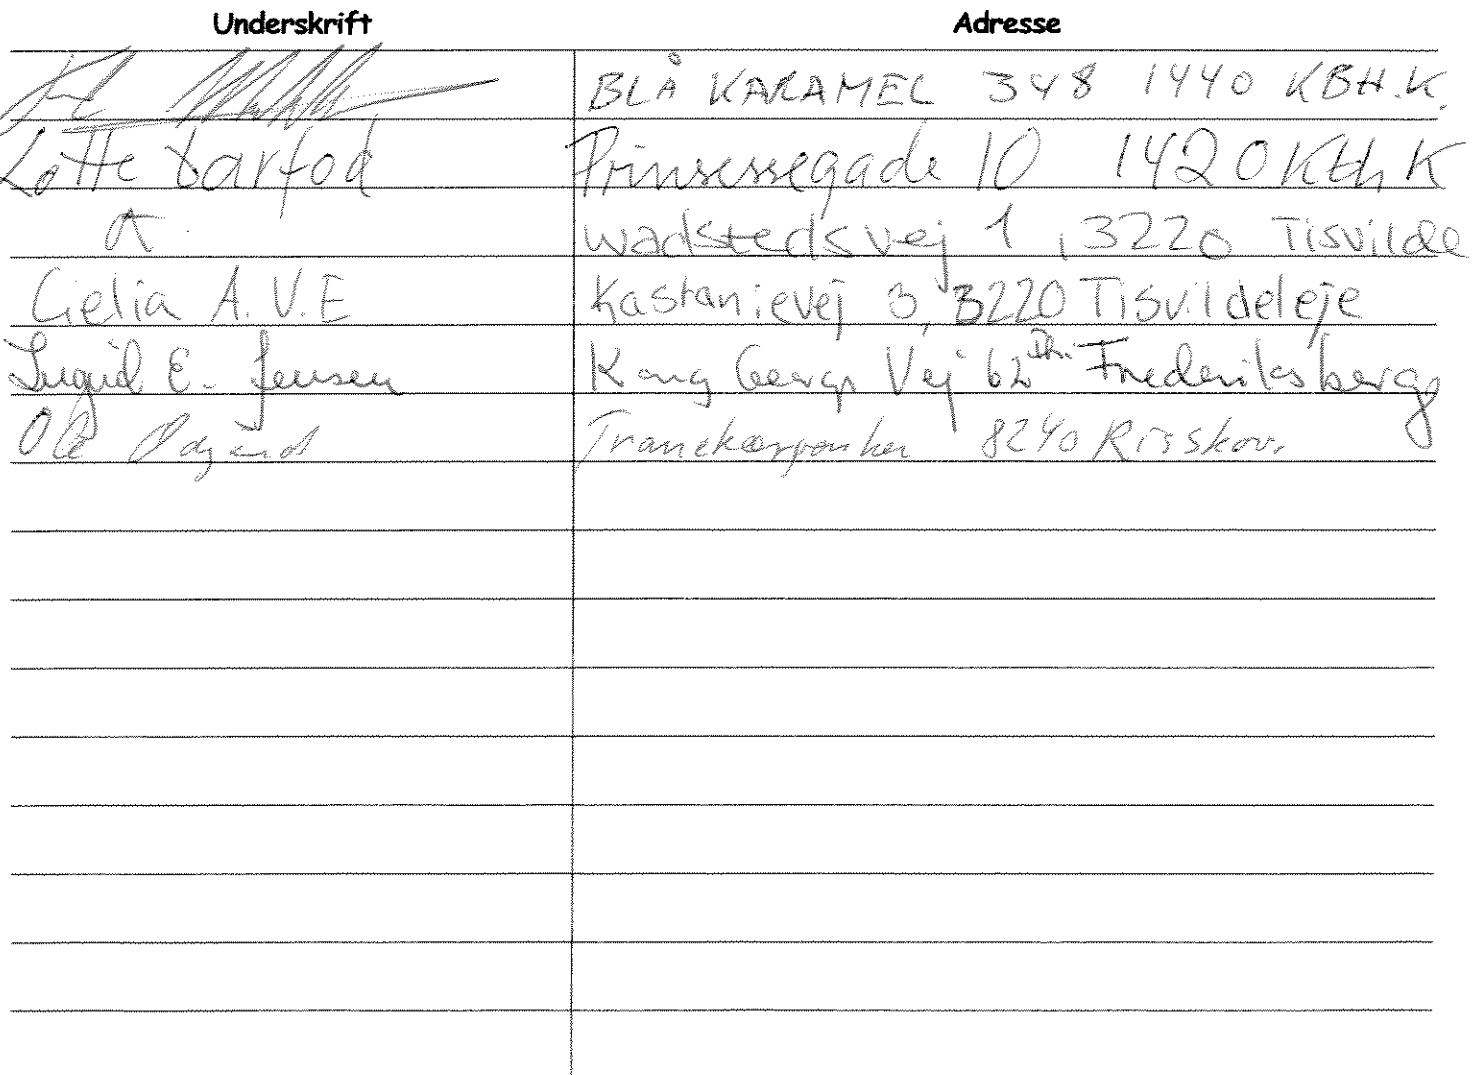 Underskrift Adresse
BLÅ KARAMEL 348 1440 KBH.K.
Lotte Barfod Prinsessegade 10 1420 Kbh K
Wadstedsvej 1, 3220 Tisvilde
Cielia A.V.E Kastanievej 3, 3220 Tisvildeleje
Ingrid E. Jensen Kong Georgs Vej 62 Frederiksberg
Ole 8240 Risskov.